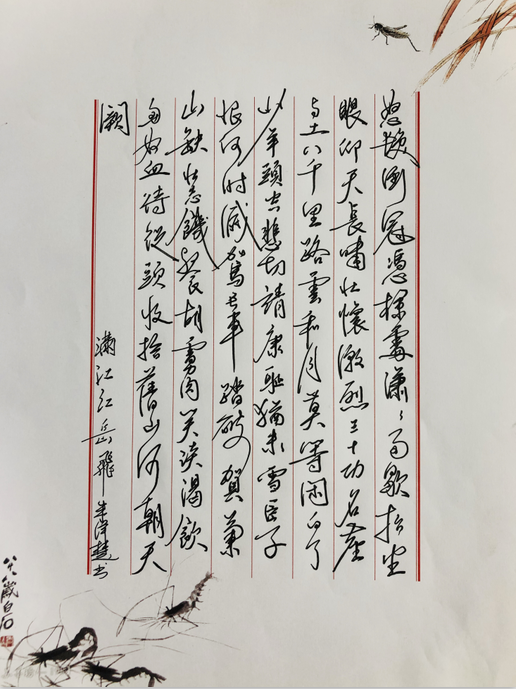 怒髮衝冠憑欄處瀟々雨歇抬望
眼仰天長嘯壯懷激烈三十功名塵
与土八千里路雲和月莫等閑白了
少年頭空悲切靖康恥猶未雪臣子
恨何时滅駕长車踏破賀蘭
山缺壯志饑餐胡虜肉笑談渴飲
匈奴血待從頭收拾舊山河朝天
闕
滿江红岳飛书
八八歲白石